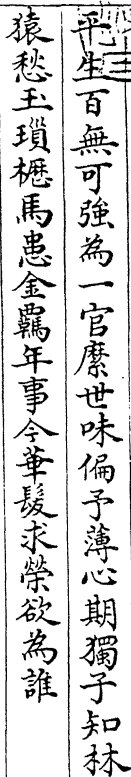 平生百無可強為一官縻世味偏予薄心期獨子知林
猿愁玉瑣櫪馬患金羈年事今華髮求榮欲為誰